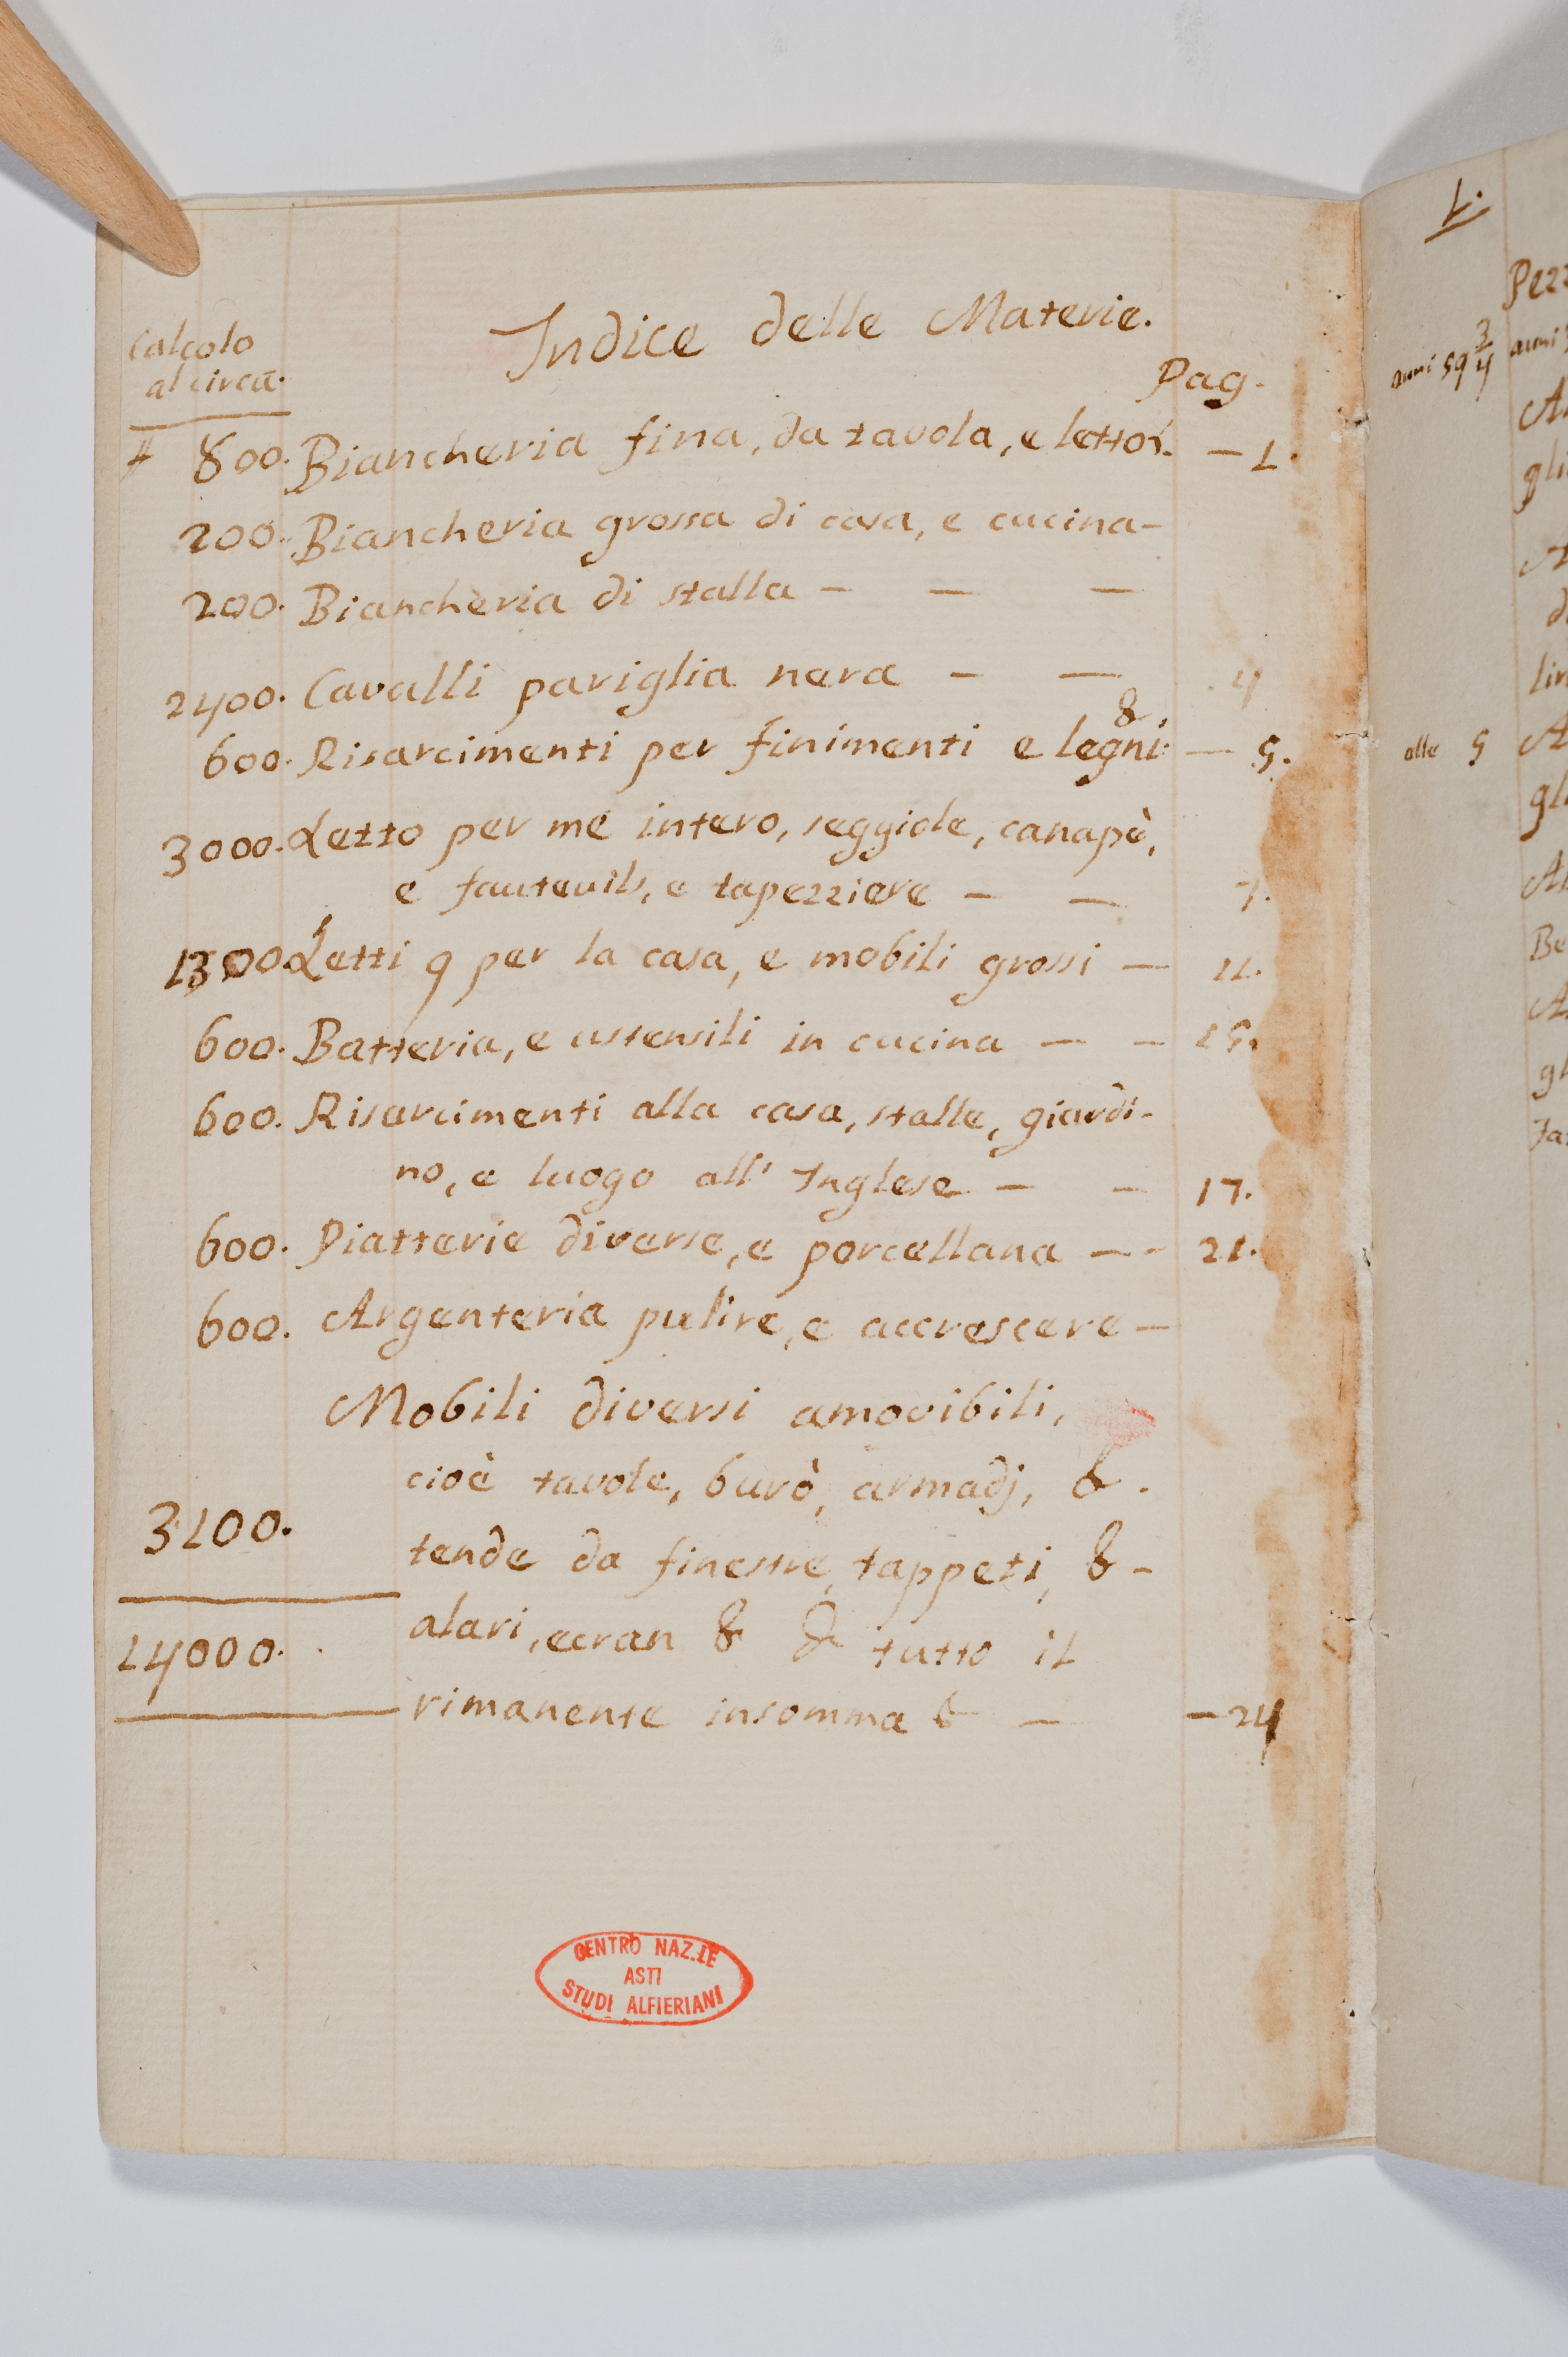 Indice delle Materie.
Calcolo
al circa.
Pag.
# 800. Biancheria fina, da tavola, e letto. — 1.
200. Biancheria grossa di casa, e cucina —
200. Biancheria di stalla — — —
2400. Cavalli pariglia nera — — 4
600. Risarcimenti per finimenti e legni &. — 5.
3000. Letto per me intero, seggiole, canapè,
e fauteuils, e tapezziere — — 7.
1300 Letti 9 per la casa, e mobili grossi — 11.
600. Batteria, e ustensili in cucina — — 15.
600. Risarcimenti alla casa, stalle, giardi-
no, e luogo all' Inglese — — 17.
600. Piatterie diverse, e porcellana — - 21.
600. Argenteria pulire, e accrescere —
Mobili diversi amovibili,
cioè tavole, burò, armadj, &.
3100.
tende da finestre, tappeti, & -
alari, ecran & & tutto il
14000.
rimanente insomma & — — 24
CENTRO NAZ.LE
ASTI
STUDI ALFIERIANI
1.
anni 59 3/4
alle 5